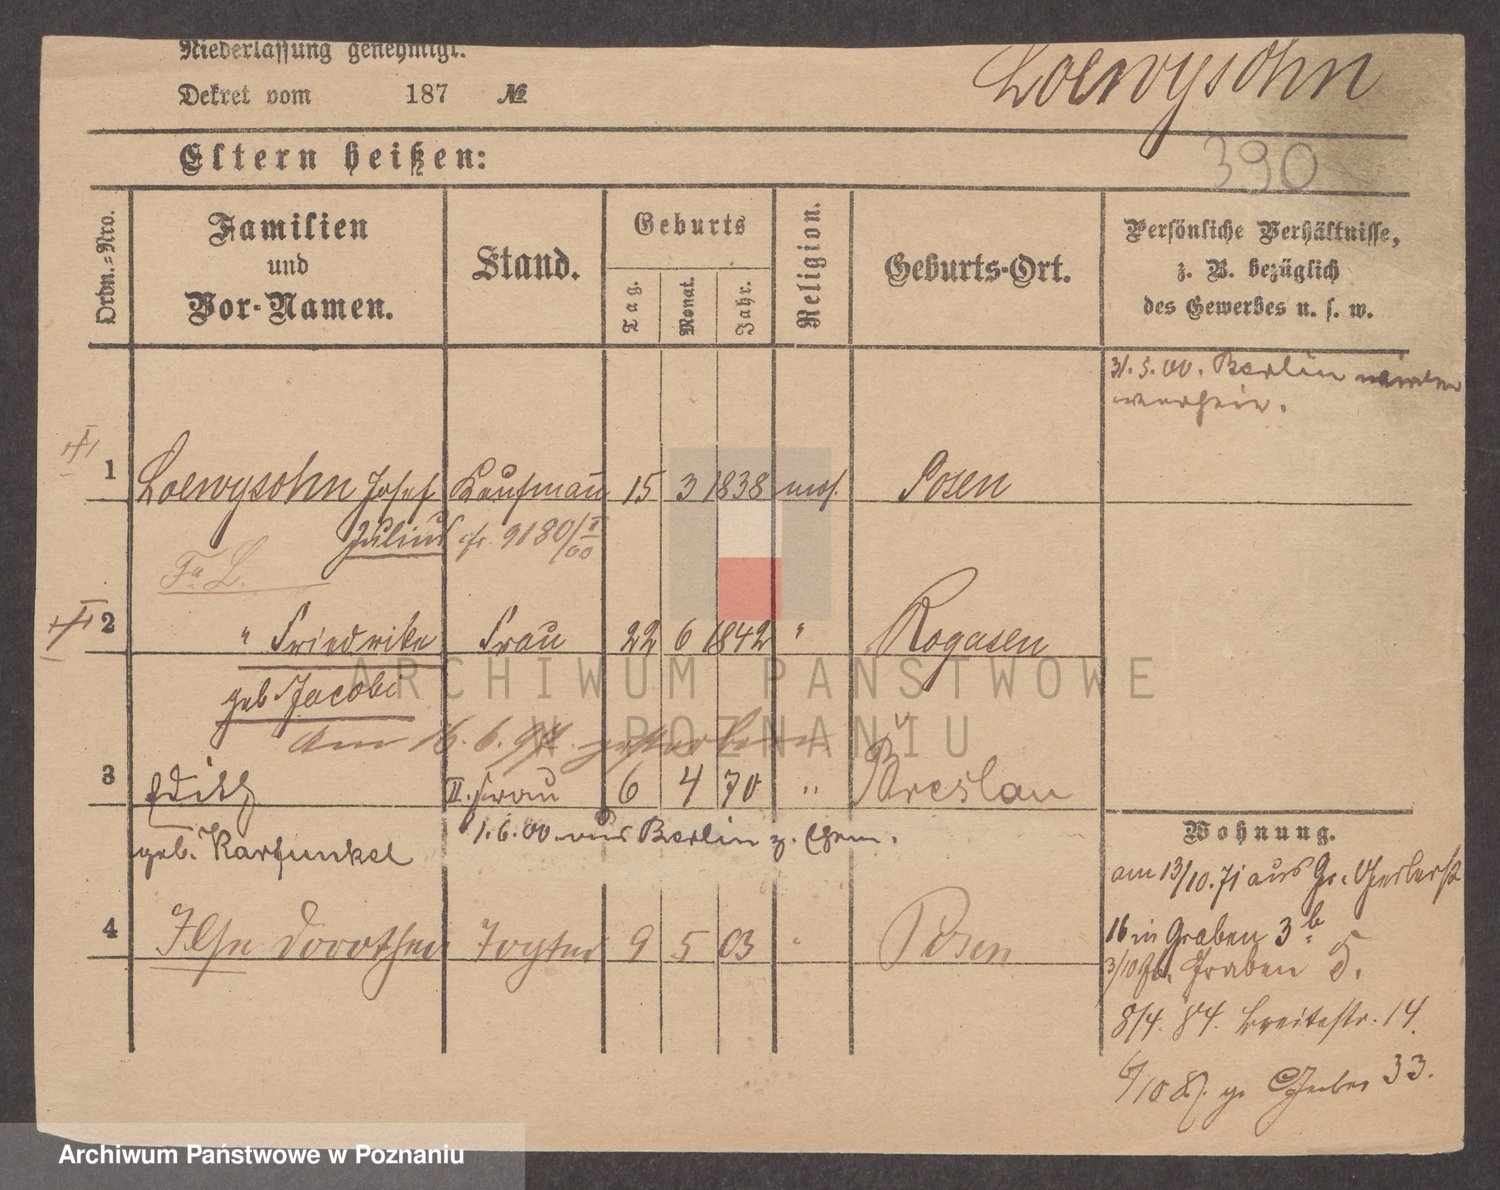 Niederlassung genehmigt.
Dekret vom 187 №
Loewysohn
390
Eltern heißen:
Ordn.-Nro.
Familien
und
Vor-Namen.
Stand.
Geburts
Tag.
Monat.
Jahr.
Religion.
Geburts-Ort.
Persönliche Verhältnisse,
z. B. bezüglich
des Gewerbes u. s. w.
31. 5. 00. Berlin
1 Loewysohn Josef Kaufmann 15 3 1838 mos. Posen
Julius cfr. 9180/I 00
Fa L.
2 " Friedrike Frau 22 6 1842 " Rogasen
geb Jacobi
am 16. 6. 97. gestorben
3 Edith II. Frau 6 4 70 " Breslau
geb. Karfunkel
1. 6. 00. aus Berlin z. Ehem.
4 Ilse Dorothea Tochter 9 5 03 " Posen
Wohnung.
am 13/10. 71 aus Gr. Gerberst
16 in Graben 3b.
3/10 Graben 5.
8/4. 84. Breitestr. 14.
6/10 87. gr. Gerber 33.
ARCHIWUM PAŃSTWOWE
W POZNANIU
Archiwum Państwowe w Poznaniu